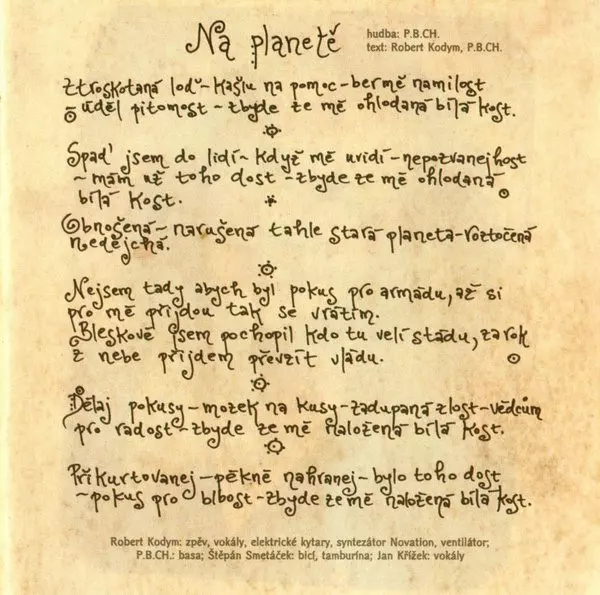 Na planetě
hudba: P.B.CH.
text: Robert Kodym, P.B.CH.
Ztroskotaná loď-kašlu na pomoc-ber mě namilost
údĕl pitomost-zbyde ze mě ohlodaná bílá kost.
Spad' jsem do lidí-když mě uvidí-nepozvanejhost
-mám už toho dost-zbyde ze mě ohlodaná
bílá kost.
Obnošená-narušená tahle stará planeta-roztočená
nedejchá.
Nejsem tady abych byl pokus pro armádu, až si
pro mě přijdou tak se vrátím.
Bleskově jsem pochopil kdo tu velí stádu, za rok
z nebe přijdem převzít vládu.
Dělaj pokusy-mozek na kusy-zadupaná zlost-vědcům
pro radost-zbyde ze mě naložená bílá kost.
Přikurtovanej-pěkně nahranej-bylo toho dost
-pokus pro blbost-zbyde ze mě naložená bílá kost.
Robert Kodym: zpěv, vokály, elektrické kytary, syntezátor Novation, ventilátor;
P.B.CH.: basa; Štěpán Smetáček: bicí, tamburína; Jan Křížek: vokály